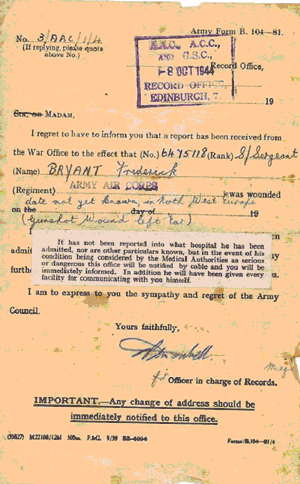 Army Form B. 104—81.
No. 3/AAC/1/4
(If replying, please quote
above No.)
A.A.C., A.C.C.,
and
G.S.C.,
-8 OCT 1944
RECORD OFFICE,
EDINBURGH, 7.
Record Office,
19
Sir, or Madam,
I regret to have to inform you that a report has been received from
the War Office to the effect that (No.) 6475118 (Rank) S/Sergeant
(Name) BRYANT Frederick
(Regiment) ARMY AIR CORPS was wounded
date not yet known, in North West Europe
on the day of 19
(Gunshot Wound left Ear)
It has not been reported into what hospital he has been
admitted, nor are other particulars known, but in the event of his
condition being considered by the Medical Authorities as serious
or dangerous this office will be notified by cable and you will be
immediately informed. In addition he will have been given every
facility for communicating with you himself.
I am to express to you the sympathy and regret of the Army
Council.
Yours faithfully,
for Officer in charge of Records.
IMPORTANT.—Any change of address should be
immediately notified to this office.
Forms/B.104—81/4